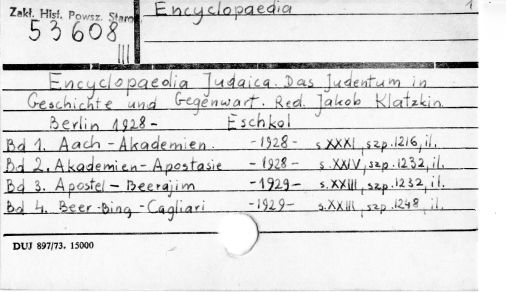 Zakł. Hist. Powsz. Staroż
Encyclopaedia
1
53608
III
Encyclopaedia Judaica. Das Judentum in
Geschichte und Gegenwart. Red. Jakob Klatzkin.
Berlin 1928- Eschkol
Bd 1. Aach-Akademien. -1928- s.XXXI, szp.1216, il.
Bd 2. Akademien-Apostasie -1928- s.XXIV, szp.1232, il.
Bd 3. Apostel-Beerajim -1929- s.XXIII, szp.1232, il.
Bd 4. Beer-Bing-Cagliari -1929- s.XXIII, szp.1248, il.
DUJ 897/73. 15000